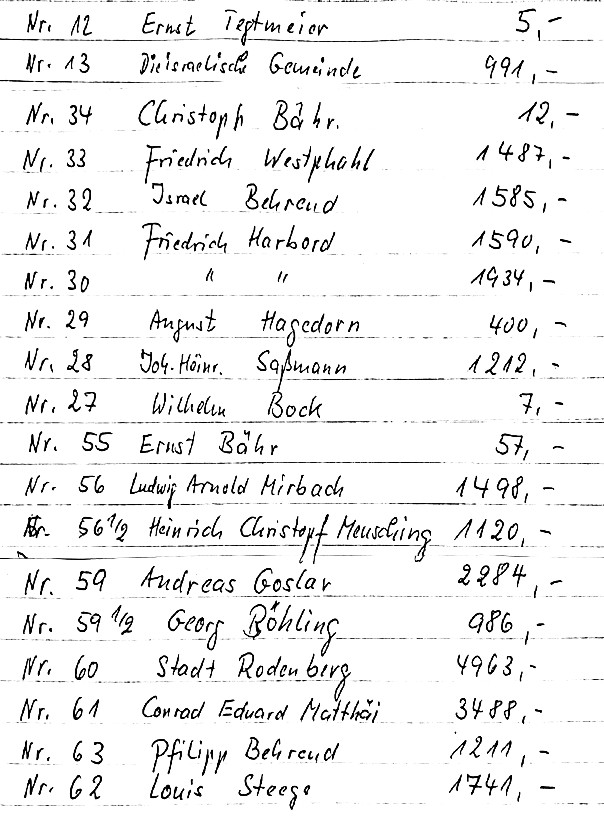 Nr. 12 Ernst Tegtmeier 5,-
Nr. 13 Die israelische Gemeinde 991,-
Nr. 34 Christoph Bähr. 12,-
Nr. 33 Friedrich Westphahl 1487,-
Nr. 32 Israel Behrend 1585,-
Nr. 31 Friedrich Harbord 1590,-
Nr. 30 " " 1934,-
Nr. 29 August Hagedorn 400,-
Nr. 28 Joh. Heinr. Saßmann 1212,-
Nr. 27 Wilhelm Bock 7,-
Nr. 55 Ernst Bähr 57,-
Nr. 56 Ludwig Arnold Mirbach 1498,-
Nr. 56 1/2 Heinrich Christopf Meusching 1120,-
Nr. 59 Andreas Goslar 2284,-
Nr. 59 1/2 Georg Böhling 986,-
Nr. 60 Stadt Rodenberg 4963,-
Nr. 61 Conrad Eduard Matthäi 3488,-
Nr. 63 Pfilipp Behrend 1211,-
Nr. 62 Louis Steege 1741,-